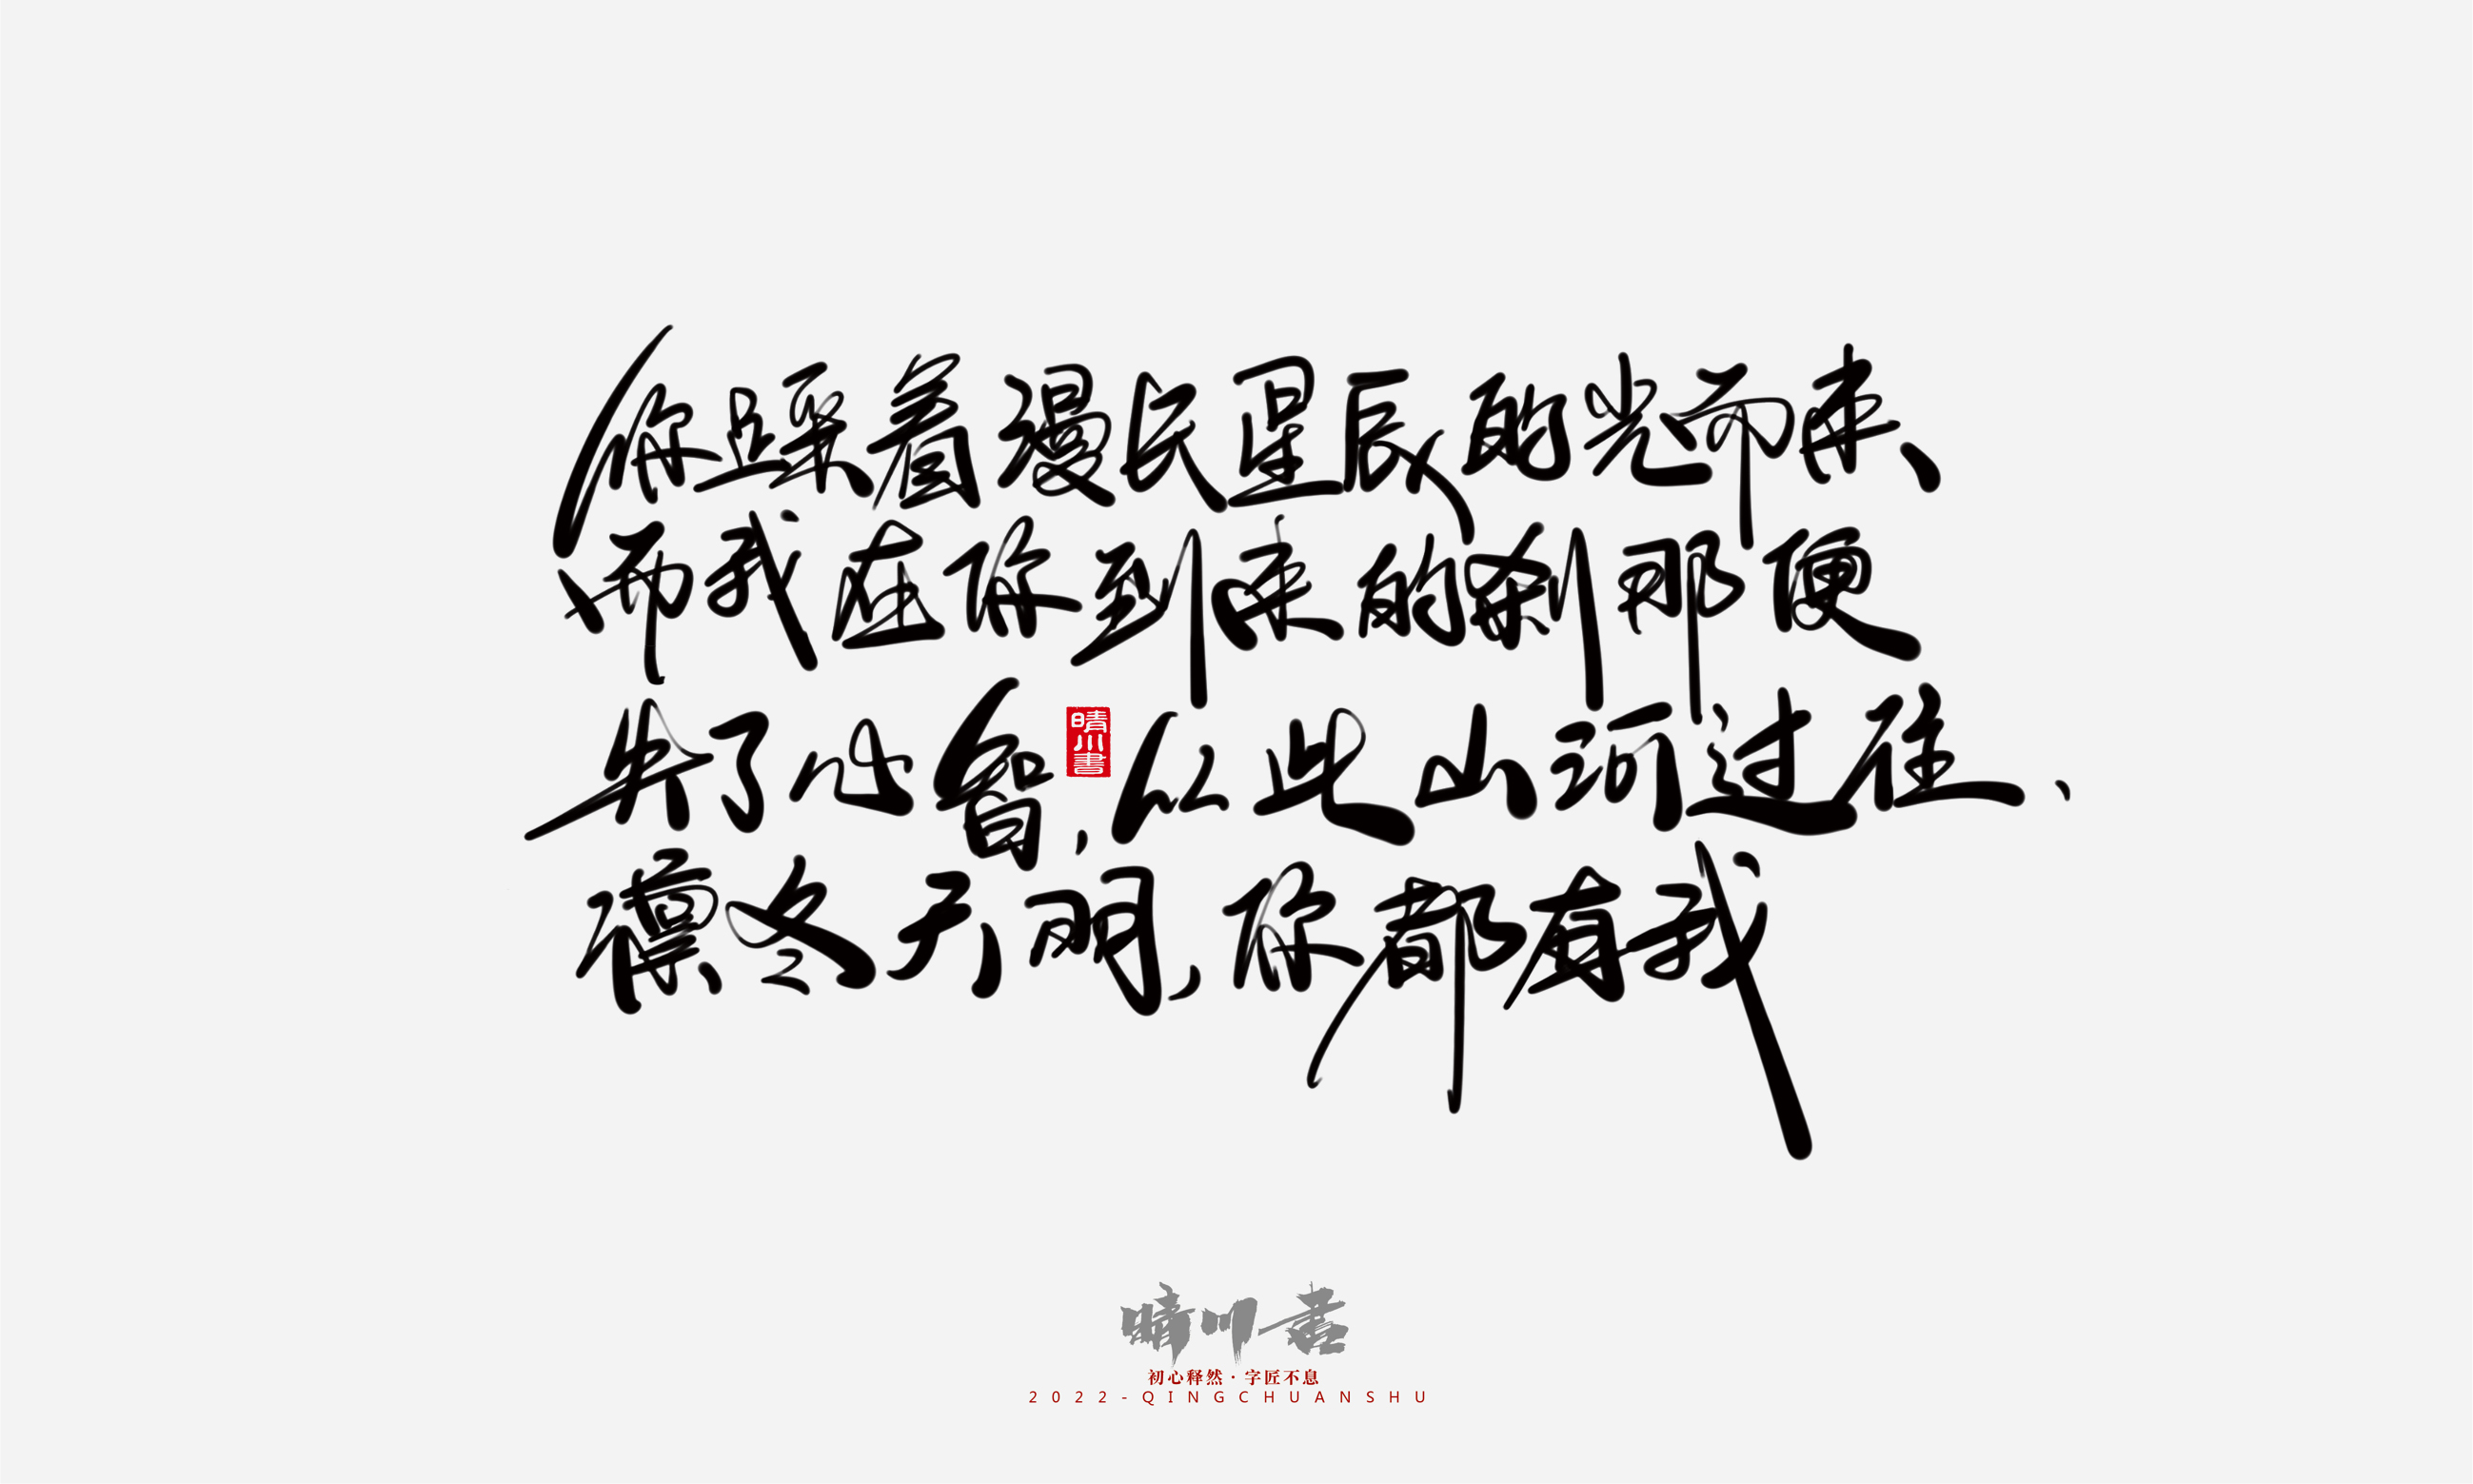 你踩着漫天星辰的光而来、
而我在你到来的刹那便
失了心智,从此山河过往、
凛冬天明,你都有我
晴川書
晴川書
初心释然·字匠不息
2022-QINGCHUANSHU